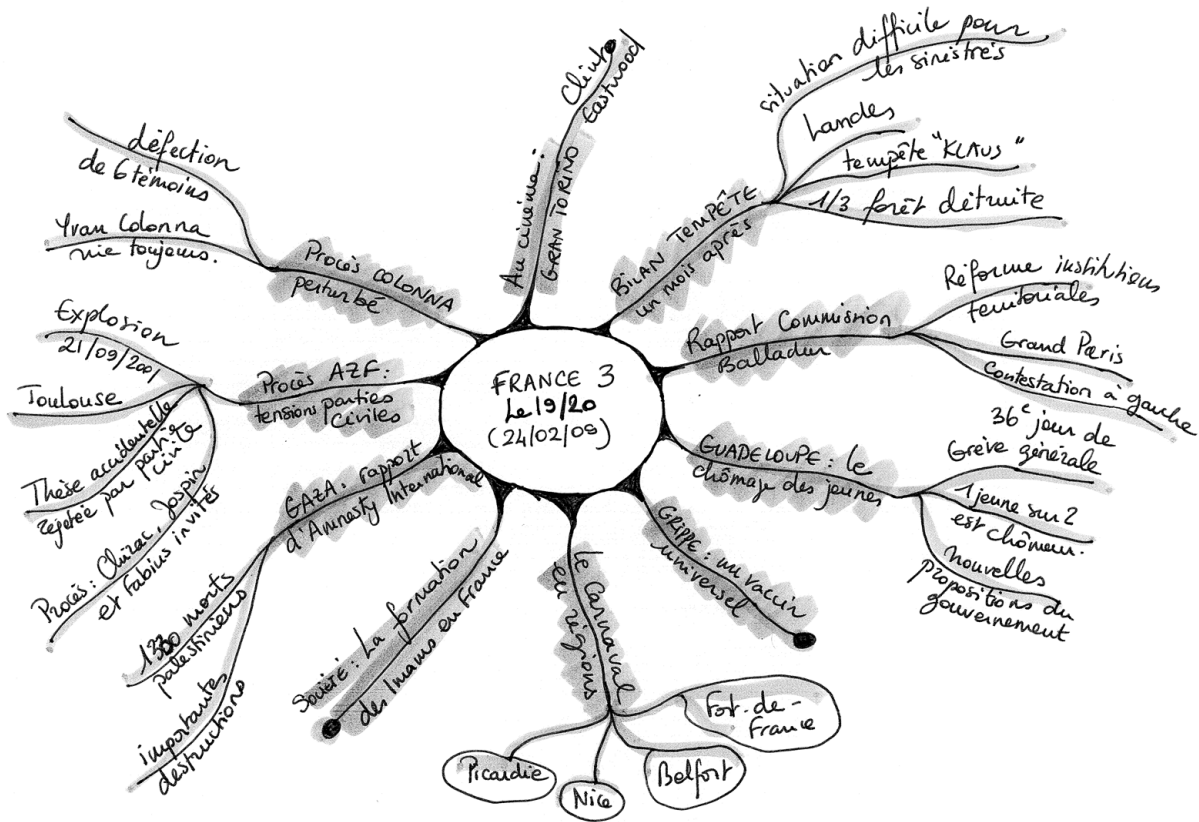 FRANCE 3
Le 19/20
(24/02/09)
Au cinéma :
GRAN TORINO
Clint
Eastwood
BILAN TEMPÊTE
un mois après
situation difficile pour
les sinistrés
Landes
tempête "KLAUS"
1/3 forêt détruite
Rapport Commission
Balladur
Réforme institutions
territoriales
Grand Paris
Contestation à gauche
GUADELOUPE : le
chômage des jeunes
36e jour de
Grève générale
1 jeune sur 2
est chômeur.
nouvelles
propositions du
gouvernement
GRIPPE : un vaccin
universel
Le Carnaval
en régions
Fort-de-
France
Belfort
Nice
Picardie
Société : La formation
des Imams en France
GAZA : rapport
d'Amnesty International
1300 morts
palestiniens
importantes
destructions
Procès AZF :
tensions parties
civiles
Explosion
21/09/2001
Toulouse
Thèse accidentelle
rejetée par partie
civile
Procès : Jospin
et Fabius invités
Procès COLONNA
perturbé
défection
de 6 témoins
Yvan Colonna
nie toujours.